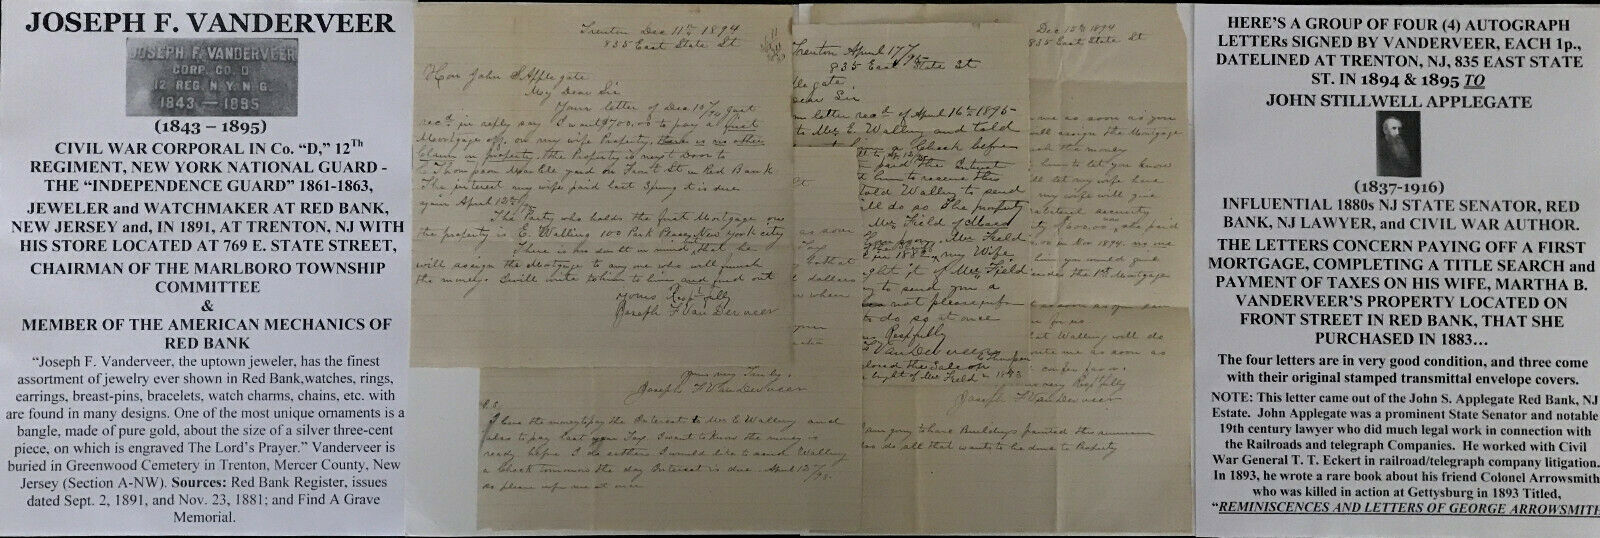 JOSEPH F. VANDERVEER
JOSEPH F. VANDERVEER
CORP. CO. D
12 REG. N.Y.N.G.
1843 — 1895
(1843 – 1895)
CIVIL WAR CORPORAL IN Co. “D,” 12Th
REGIMENT, NEW YORK NATIONAL GUARD -
THE “INDEPENDENCE GUARD” 1861-1863,
JEWELER and WATCHMAKER AT RED BANK,
NEW JERSEY and, IN 1891, AT TRENTON, NJ WITH
HIS STORE LOCATED AT 769 E. STATE STREET,
CHAIRMAN OF THE MARLBORO TOWNSHIP
COMMITTEE
&
MEMBER OF THE AMERICAN MECHANICS OF
RED BANK
“Joseph F. Vanderveer, the uptown jeweler, has the finest
assortment of jewelry ever shown in Red Bank,watches, rings,
earrings, breast-pins, bracelets, watch charms, chains, etc. with
are found in many designs. One of the most unique ornaments is a
bangle, made of pure gold, about the size of a silver three-cent
piece, on which is engraved The Lord’s Prayer.” Vanderveer is
buried in Greenwood Cemetery in Trenton, Mercer County, New
Jersey (Section A-NW). Sources: Red Bank Register, issues
dated Sept. 2, 1891, and Nov. 23, 1881; and Find A Grave
Memorial.
Trenton Dec 11th 1894
835 East State St
Hon John S Applegate
My Dear Sir
Your letter of Dec 10/94 just
recd, in reply say I want $700.00 to pay a first
Mortgage off, on my wife Property, there is no other
Claim on property, the Property is next Door to
Thompson Marble yard on Front St in Red Bank
The interest my wife paid last Spring it is due
again April 12th/95
The Party who holds the first Mortgage on
the property is E. Walling 100 Park Place, New York city
There is
will assign the Mortgage to any one who will furnish
the money. I will write to him and find out
Yours Respᵗfully
Joseph F VanDerveer
yours very Truly,
Joseph F VanDerveer
P.S.
I have the money to pay the Interest to Mr E Walling and
also to pay last year Tax. I want to know the money is
ready before I do either. I would like to send Walling
a Check tomorrow the day Interest is due April 12th/95.
so please wire me at once
Trenton April 17/95
835 East State St
Dear Sir
letter recd of April 16th 1895
to Mr E. Walling and told
a Check before
paid the Interest
him to receive this
told Walling to send
do so The property
Mr Field of
Mr Field
my Wife
bought it of Mr Field
to send you a
not please inform
do so at once
Respfully
VanDerveer
the Sale of
bought of Mr Field in 1883
Dec 15th 1894
835 East State St
me as soon as you
will assign the Mortgage
the money
him to let you know
let my wife have
my wife will give
security
she paid
in Dec 1894. no one
him you would give
the 1st Mortgage
as soon as you can
for us
Walling will do
write me as soon as
yours very Respfully
Joseph F VanDerveer
am going to have Buildings painted this summer
do all that wants to be done to Property
HERE’S A GROUP OF FOUR (4) AUTOGRAPH
LETTERs SIGNED BY VANDERVEER, EACH 1p.,
DATELINED AT TRENTON, NJ, 835 EAST STATE
ST. IN 1894 & 1895 TO
JOHN STILLWELL APPLEGATE
(1837-1916)
INFLUENTIAL 1880s NJ STATE SENATOR, RED
BANK, NJ LAWYER, and CIVIL WAR AUTHOR.
THE LETTERS CONCERN PAYING OFF A FIRST
MORTGAGE, COMPLETING A TITLE SEARCH and
PAYMENT OF TAXES ON HIS WIFE, MARTHA B.
VANDERVEER’S PROPERTY LOCATED ON
FRONT STREET IN RED BANK, THAT SHE
PURCHASED IN 1883…
The four letters are in very good condition, and three come
with their original stamped transmittal envelope covers.
NOTE: This letter came out of the John S. Applegate Red Bank, NJ
Estate. John Applegate was a prominent State Senator and notable
19th century lawyer who did much legal work in connection with
the Railroads and telegraph Companies. He worked with Civil
War General T. T. Eckert in railroad/telegraph company litigation.
In 1893, he wrote a rare book about his friend Colonel Arrowsmith
who was killed in action at Gettysburg in 1893 Titled,
“REMINISCENCES AND LETTERS OF GEORGE ARROWSMITH